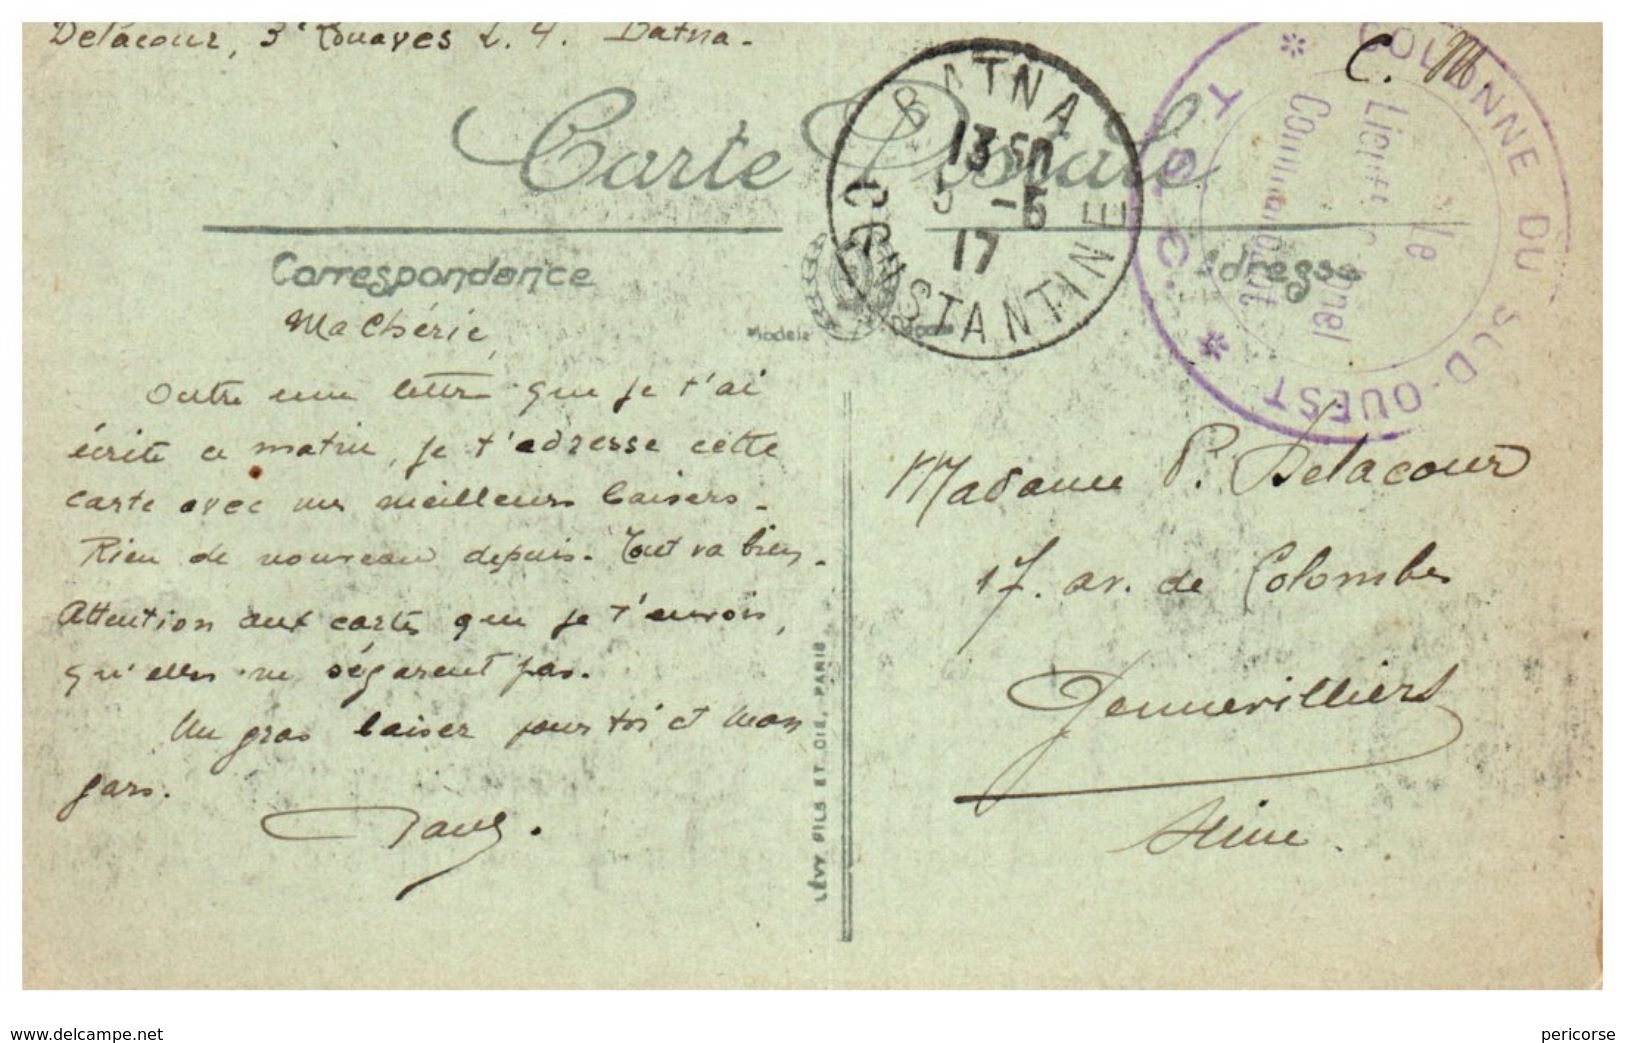 Delacour, 3e Zouaves L. 4. Batna.
C. M.
Carte Postale
BATNA
13 50
5 -5
17
CONSTANTINE
COLONNE DU SUD-OUEST
T. S. C.
Le
Lieutt Colonel
Commandant
Correspondance
Adresse
Modèle
Ma Chérie,
Outre une lettre que je t'ai
écrite ce matin, je t'adresse cette
carte avec mes meilleurs baisers.
Rien de nouveau depuis. Tout va bien.
Attention aux cartes que je t'envois,
qu'elles ne ségarent pas.
Un gros baiser pour toi et mon
gars.
Paul.
LÉVY FILS ET CIE, PARIS
Madame P. Delacour
17. av. de Colombes
Gennevilliers
Seine.
www.delcampe.net
pericorse